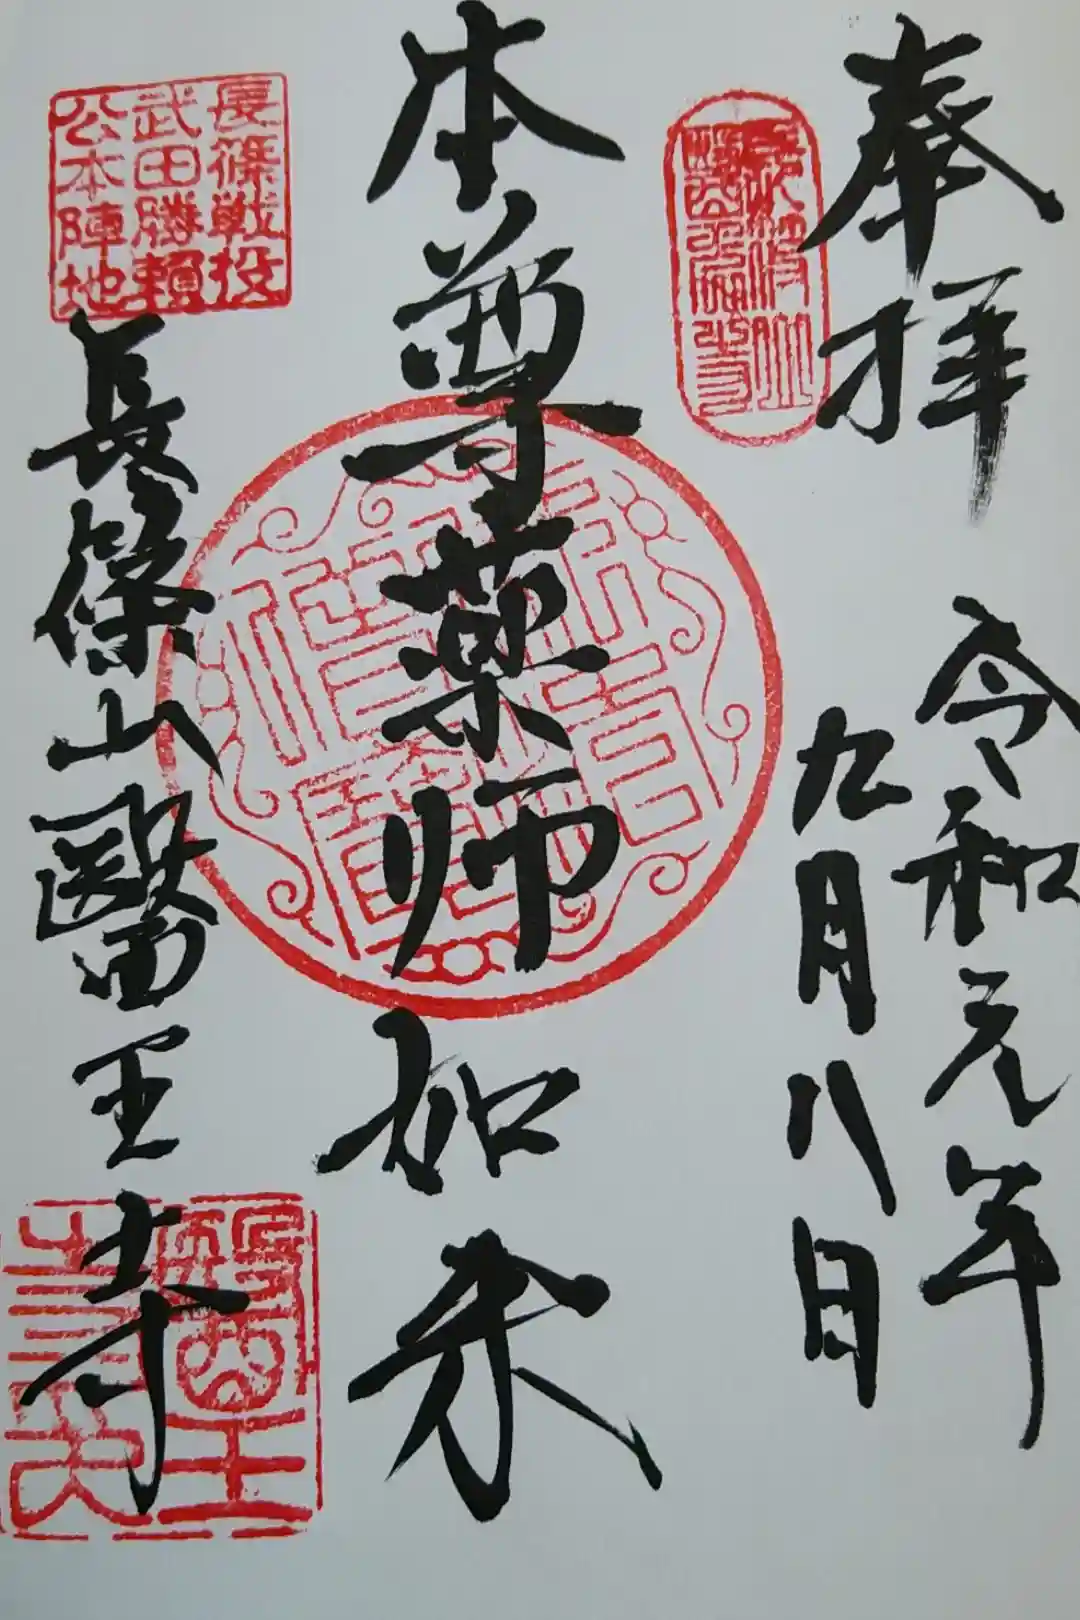 奉拝
令和元年
九月八日
本尊薬师如来
長篠戦役
武田勝頼
公本陣地
長篠山醫王寺